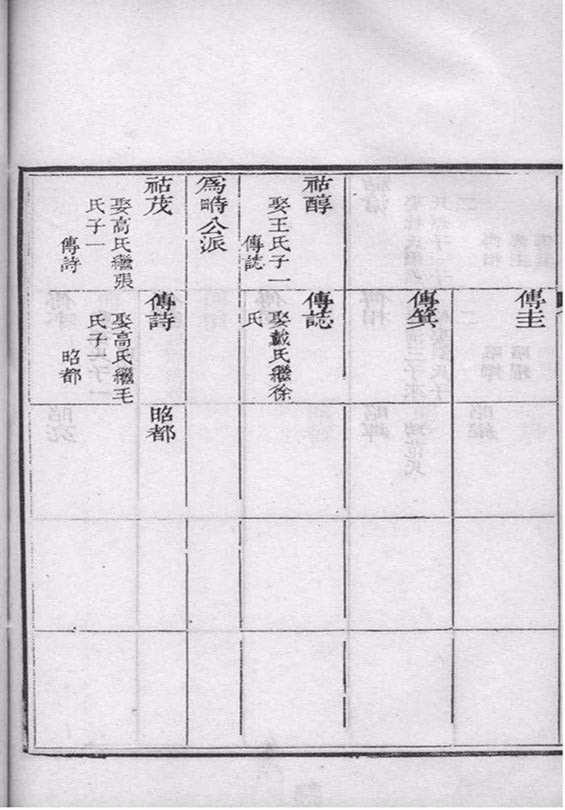 傳圭
傳箕
祜醇
娶王氏子一
傳誌
傳誌
娶戴氏繼徐
氏
為時公派
祜茂
娶高氏繼張
氏子一
傳詩
傳詩
娶高氏繼毛
氏子一
昭都
昭都